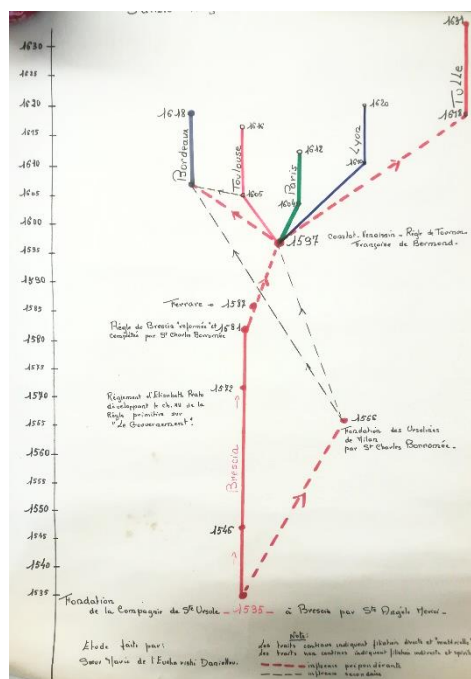 1630
1625
1620
1615
1610
1605
1600
1595
1590
1585
1580
1575
1570
1565
1560
1555
1550
1545
1540
1535
1631
Tulle
1618
1618
Bordeaux
1616
Toulouse
1605
1612
Paris
1604
1620
Lyon
1610
1597
Comtat-Venaissin - Règle de Tournon
Françoise de Bermond.
Ferrare - 1587
Règle de Brescia "réformée" et
complétée par St Charles Borromée
1581
1572
Règlement d'Elisabeth Prato
développant le ch. de la
Règle primitive sur
"Le Gouvernement".
Brescia
1566
Fondation des Ursulines
de Milan
par St Charles Borromée.
1546
Fondation
de la Compagnie de Ste Ursule - 1535 - à Brescia par Ste Angèle Merici -
Etude faite par:
Sœur Marie de l'Eucharistie
note:
Les traits continus indiquent filiation directe et "matérielle"
Les traits non continus indiquent filiation indirecte et
influence prépondérante
influence secondaire